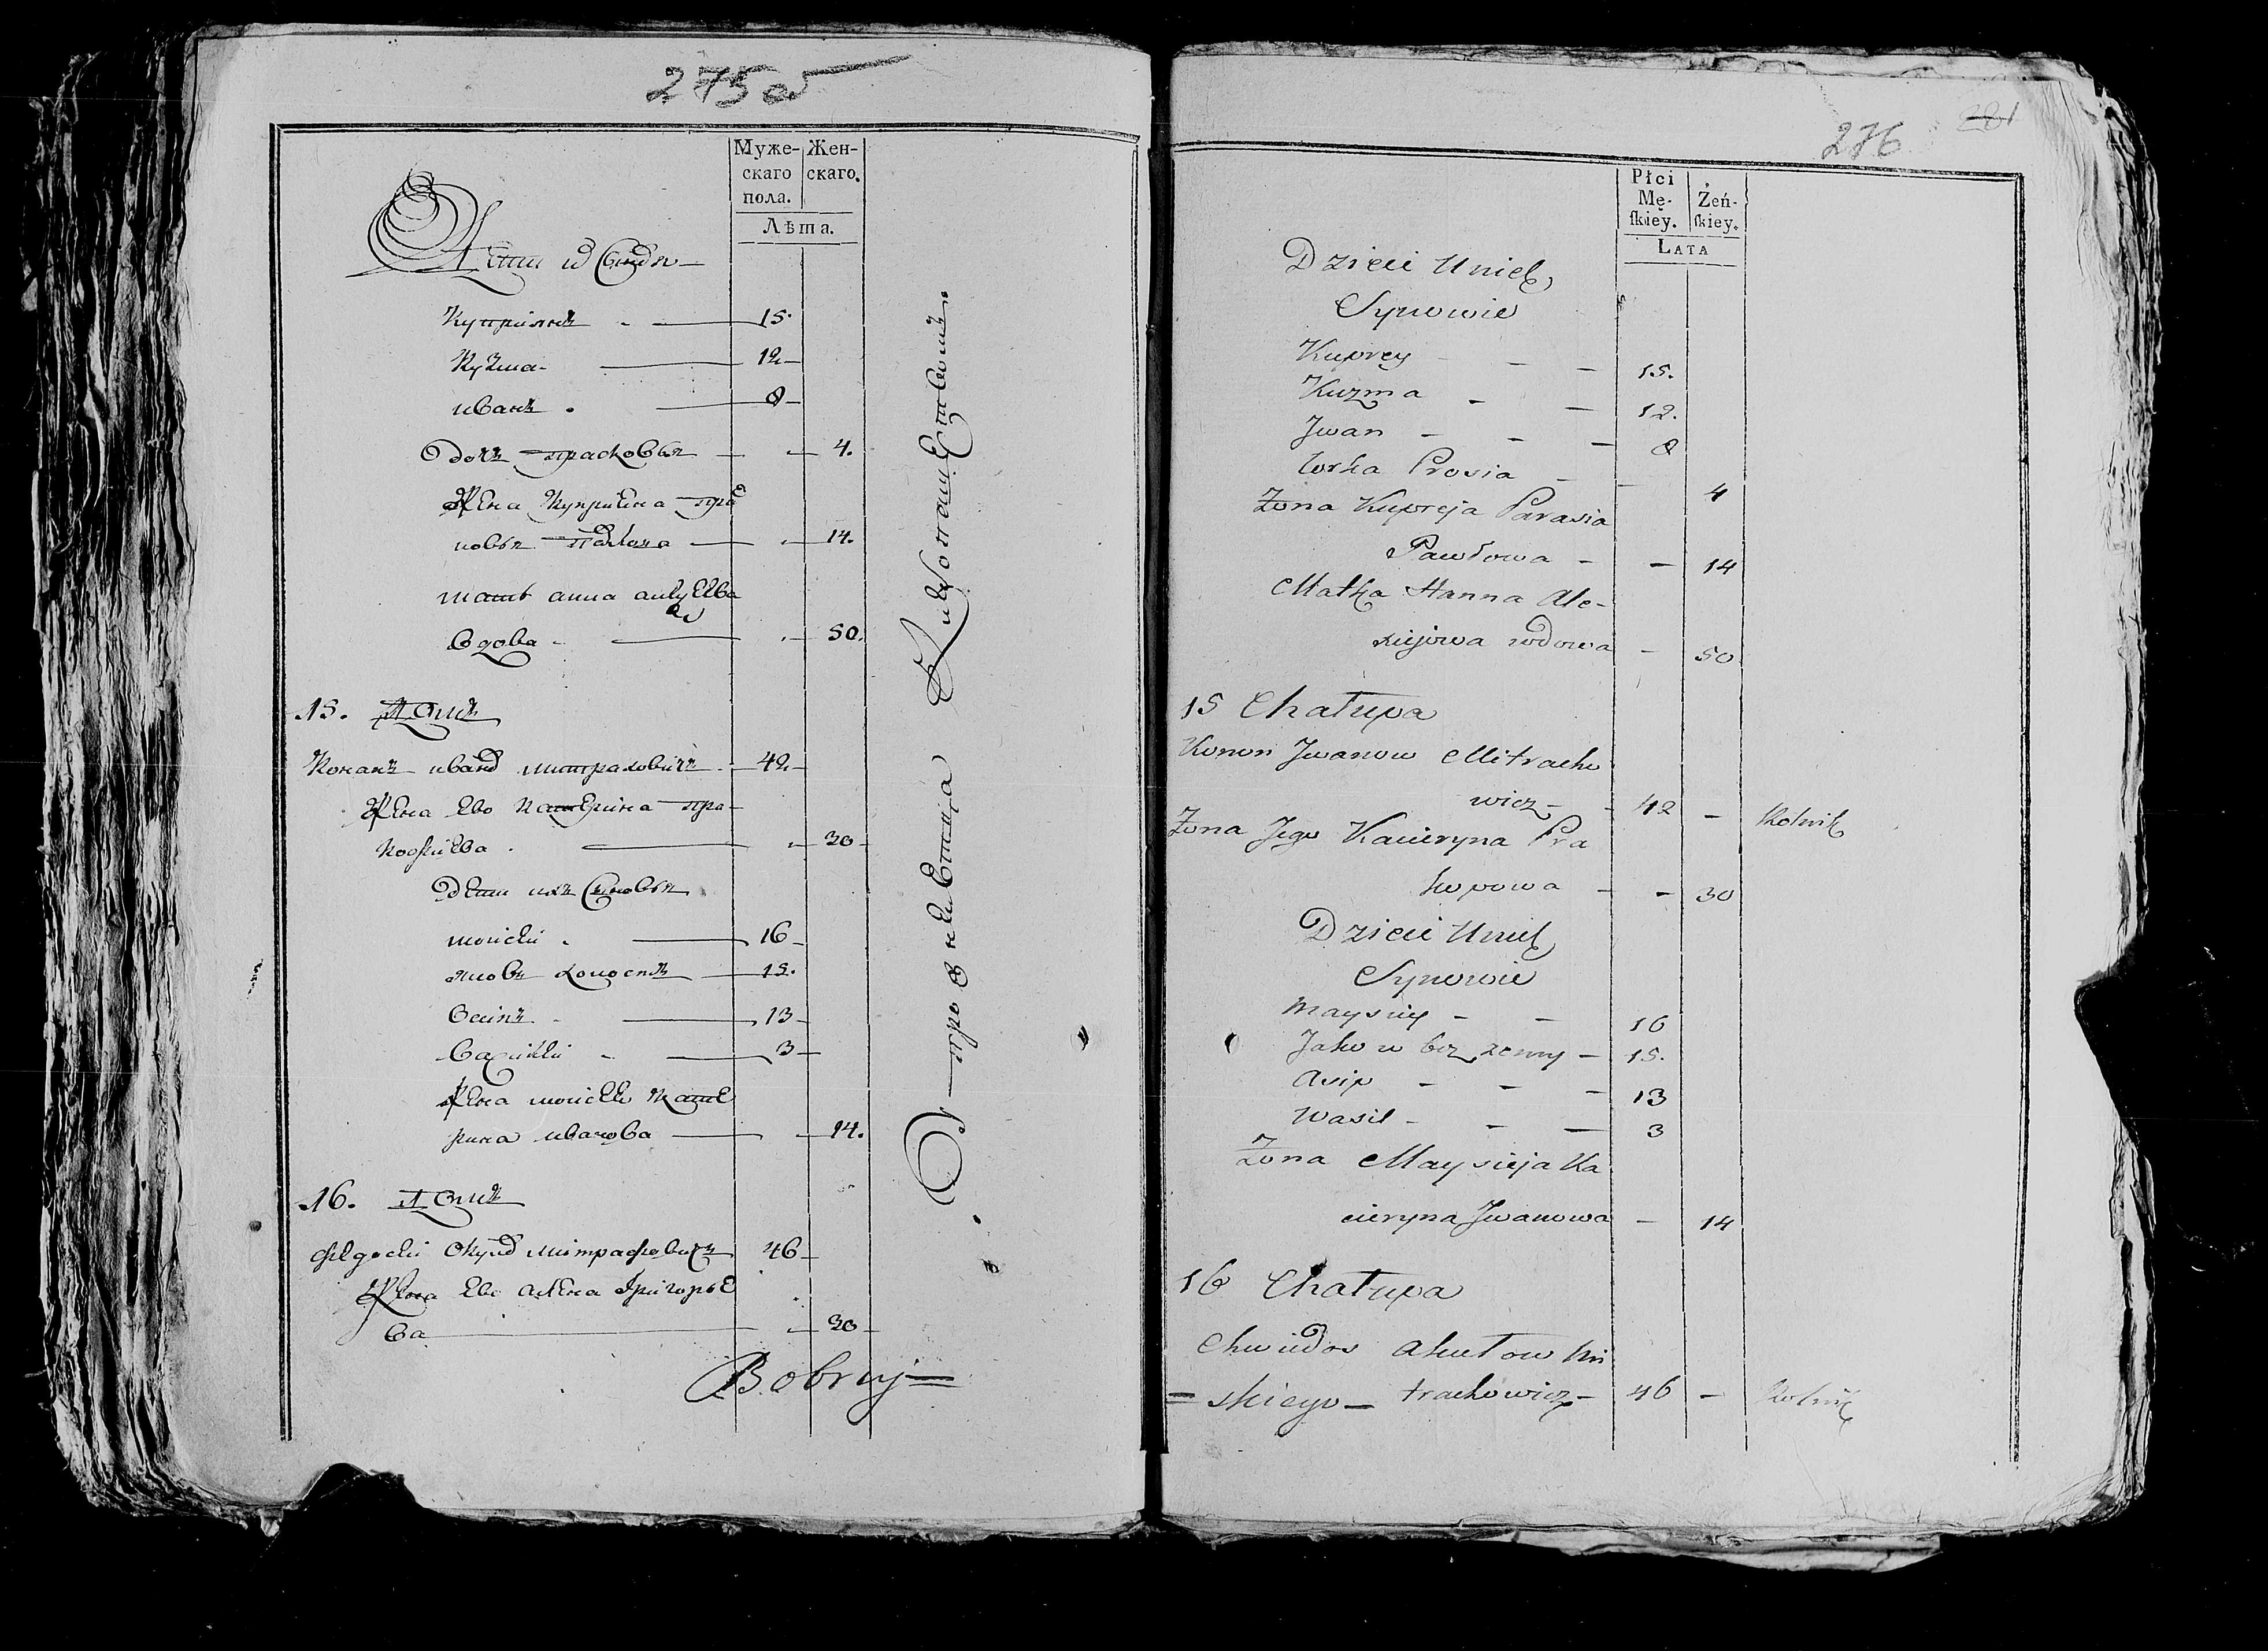 275 об
Муже-
скаго
пола.
Жен-
скаго.
Лѣта.
Дети их Синовя
Куприянъ 15.
Кузма 12
иванъ 8
дочъ прасковя 4.
Жена Куприена
14.
мать анна
вдова 50.
15. Домъ
Конанъ иванов митраховичъ 42
Жена Ево Катерина пра
30
дети ихъ Синовя
моисеи 16
яковъ холостъ 15.
Осипъ 13
Василеи 3
Жена моисеи Кате
рина иванова 14.
16. Домъ
федосеи митрафовичъ 46
Жена Ево алена Григорье
ва 30
Bobruj=
276
281
Płci
Mę-
ſkiey.
Żeń-
ſkiey.
LATA
Dzieci Unich
Synowie
Kuprey 15.
Kuzma 12.
Jwan 8
Corka Prosia 4
Żona Kupreja Parasia
Pawłowa 14
Matka Hanna Ale-
xiejowa wdowa 50
15 Chałupa
Konon Jwanow Mitracho
wicz 42 Rolnik
Żona Jego Kacieryna Pra
kopowa 30
Dzieci Unich
Synowie
Maysiey 16
Jakow bez zenny 15.
Asip 13
Wasil 3
Żona Maysieja Ka
cieryna Jwanowa 14
16 Chałupa
Chwiedos Akułow Mi
=skiego trachowicz 46 Rolnik